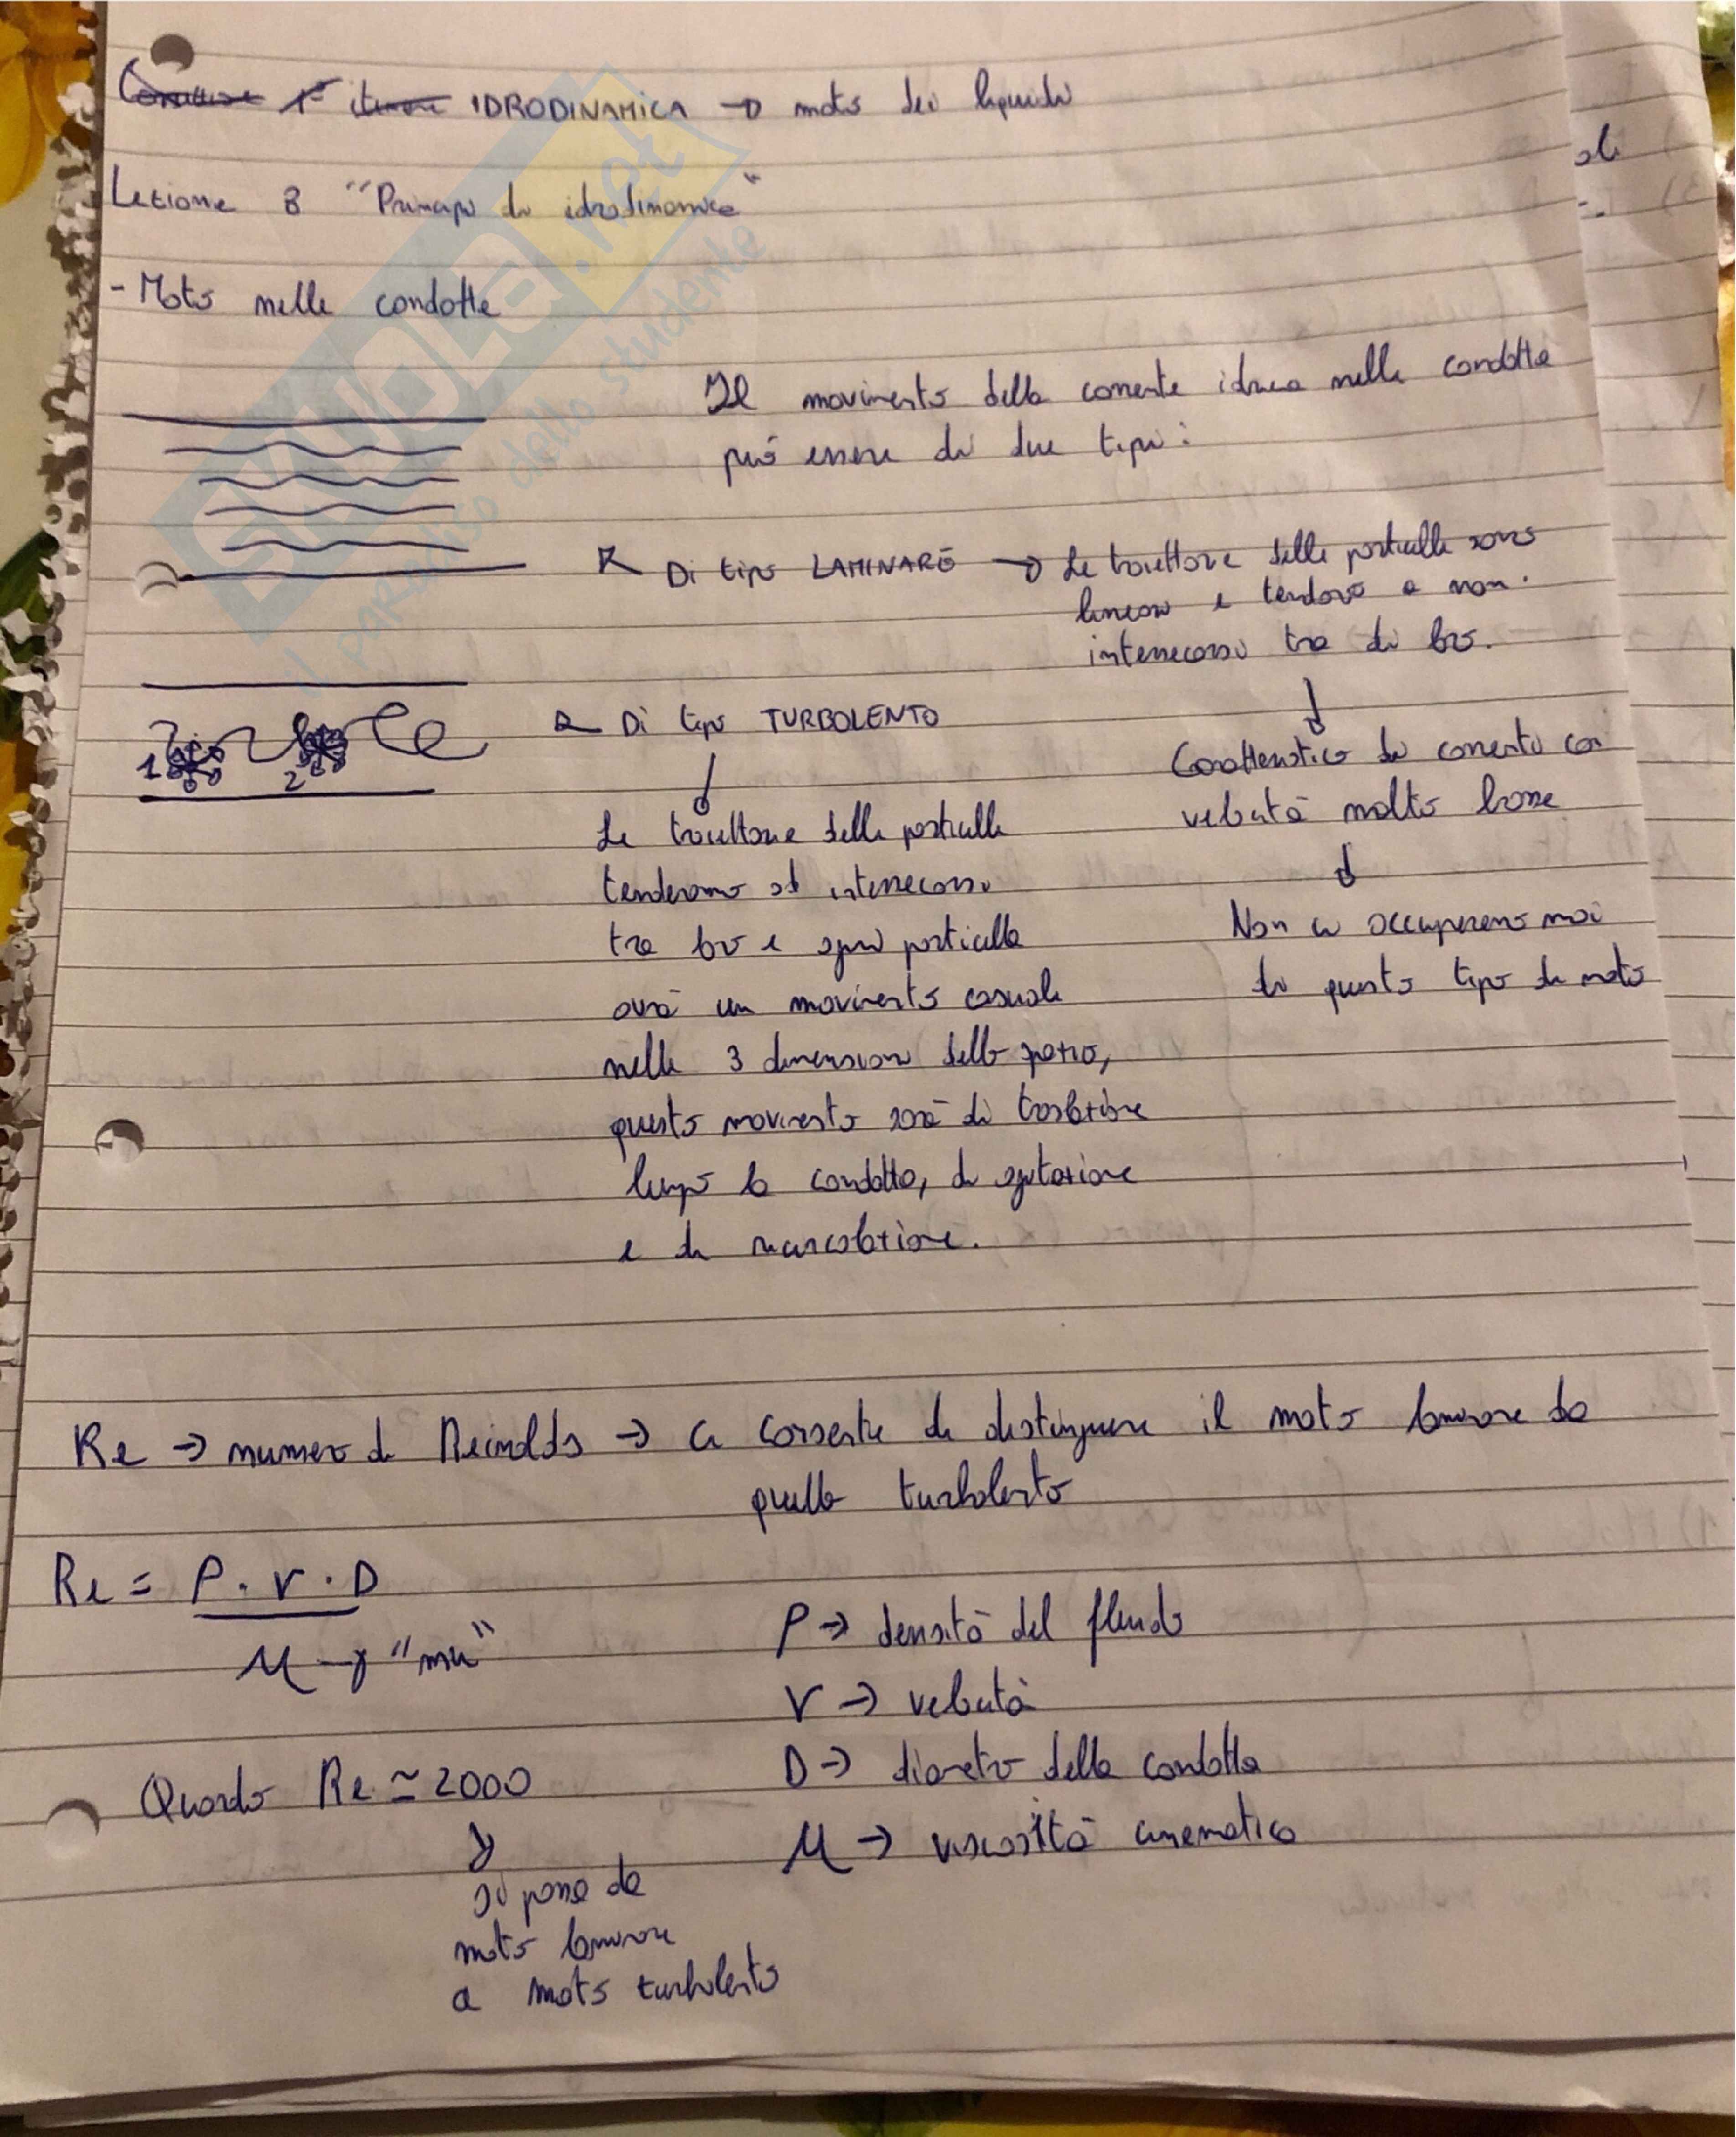 IDRODINAMICA → moto dei liquidi
Lezione 8 "Principi di idrodinamica"
- Moto nelle condotte
Il movimento della corrente idrica nelle condotte
può essere di due tipi:
Di tipo LAMINARE → Le traiettorie delle particelle sono
lineari e tendono a non
intersecarsi tra di loro.
Caratteristico di correnti con
velocità molto basse
Non ci occuperemo mai
di questo tipo di moto
Di tipo TURBOLENTO
1 2
Le traiettorie delle particelle
tenderanno ad intersecarsi
tra loro e ogni particella
avrà un movimento casuale
nelle 3 dimensioni dello spazio,
questo movimento sarà di traslazione
lungo la condotta, di agitazione
e di mescolazione.
Re → numero di Reinolds → Ci consente di distinguere il moto laminare da
quello turbolento
Re = ρ . V . D
μ → "mu"
ρ → densità del fluido
V → velocità
D → diametro della condotta
μ → viscosità cinematica
Quando Re ≃ 2000
si passa da
moto laminare
a moto turbolento
skuola.net
il paradiso dello studente